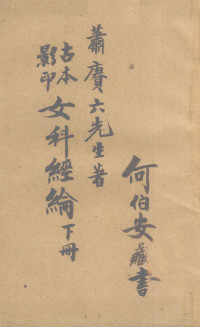 何伯安書
蕭賡六先生著
古本影印女科經綸下冊